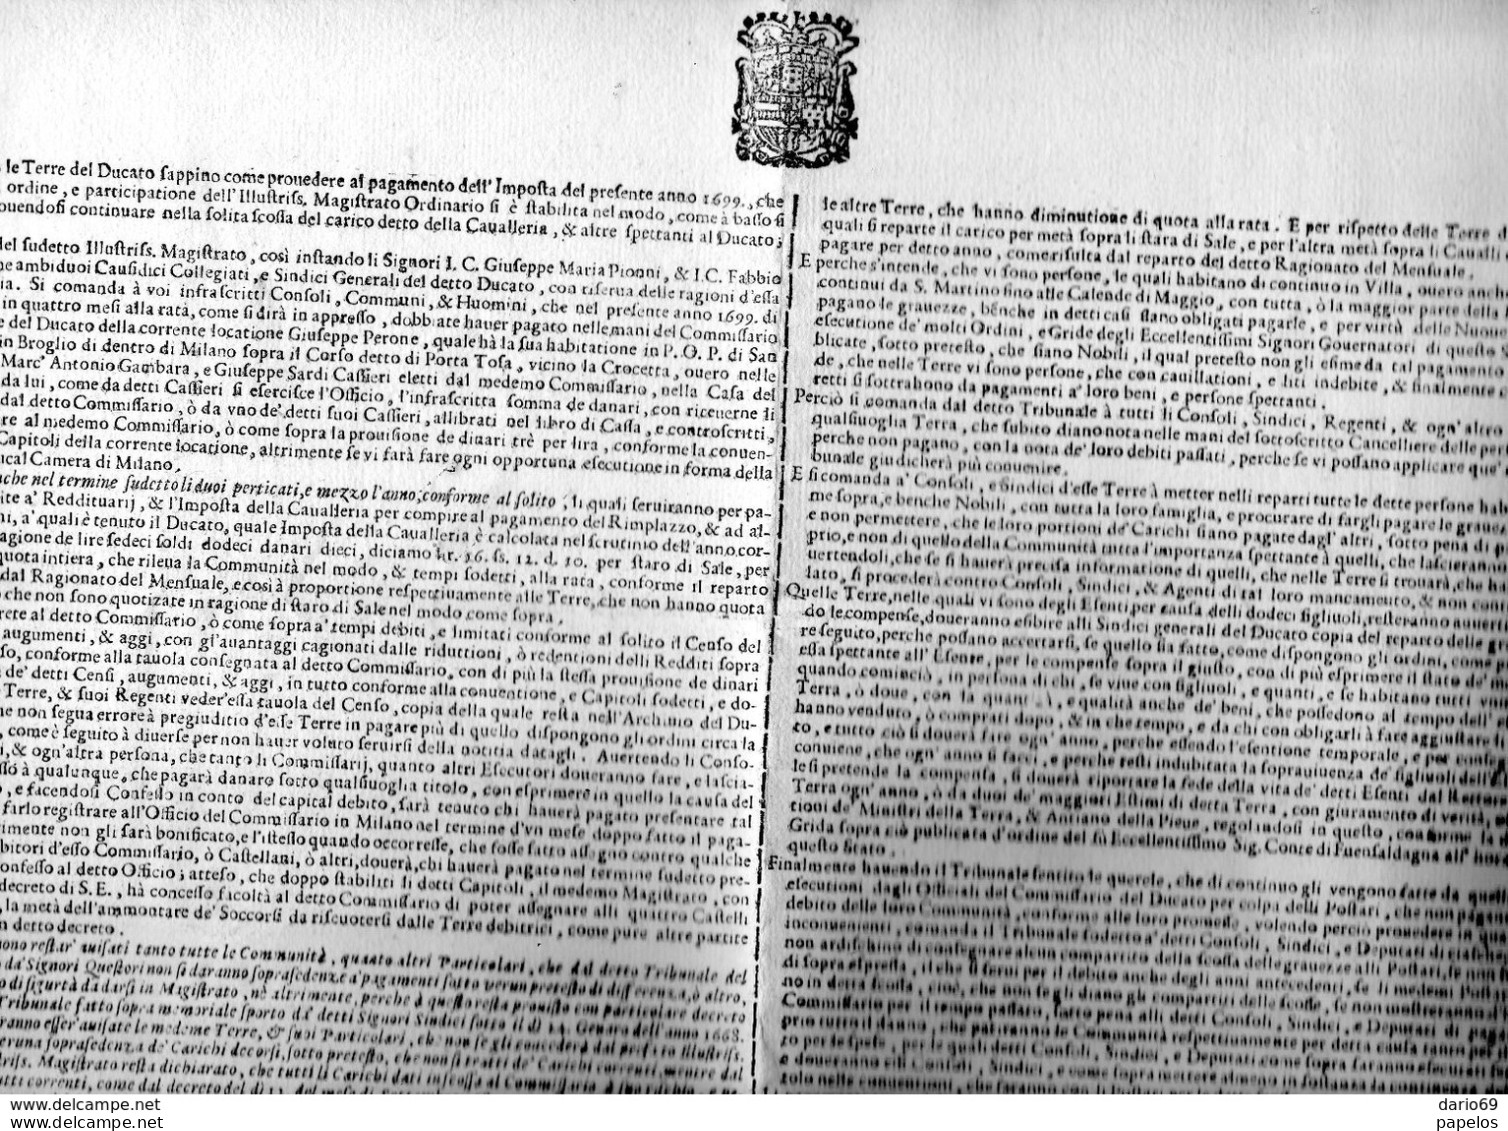 le Terre del Ducato sappino come prouedere al pagamento dell'Imposta del presente anno 1699., che
ordine, e participatione dell'Illustriss. Magistrato Ordinario si è stabilita nel modo, come à basso si
ouendosi continuare nella solita scossa del carico detto della Caualleria, & altre spettanti al Ducato;
del sudetto Illustriss. Magistrato, così instando li Signori J. C. Giuseppe Maria Pionni, & J. C. Fabbio
ne ambiduoi Causidici Collegiati, e Sindici Generali del detto Ducato, con riserua delle ragioni d'essa
ia. Si comanda à voi infrascritti Consoli, Communi, & Huomini, che nel presente anno 1699. di
in quattro mesi alla rata, come si dirà in appresso, dobbiate hauer pagato nelle mani del Commissario
e del Ducato della corrente locatione Giuseppe Perone, quale hà la sua habitatione in P. O. P. di San
in Broglio di dentro di Milano sopra il Corso detto di Porta Tosa, vicino la Crocetta, ouero nelle
Marc' Antonio Gambara, e Giuseppe Sardi Cassieri eletti dal medemo Commissario, nella Casa del
da lui, come da detti Cassieri si esercisce l'Officio, l'infrascritta somma de danari, con riceuerne li
dal detto Commissario, ò da vno de' detti suoi Cassieri, allibrati nel libro di Cassa, e controscritti,
re al medemo Commissario, ò come sopra la prouisione de dinari trè per lira, conforme la conuen-
Capitoli della corrente locatione, altrimente se vi farà fare ogni opportuna esecutione in forma della
ical Camera di Milano.
che nel termine sudetto li duoi perticati, e mezzo l'anno, conforme al solito, li quali seruiranno per pa-
ite a' Reddituarij, & l'Imposta della Caualleria per compire al pagamento del Rimplazzo, & ad al-
ni, a' quali è tenuto il Ducato, quale Imposta della Caualleria è calcolata nel scrutinio dell'anno cor-
agione de lire sedeci soldi dodeci danari dieci, diciamo lir. 16. ss. 12. d. 10. per staro di Sale, per
quota intiera, che rileua la Communità nel modo, & tempi sodetti, alla rata, conforme il reparto
dal Ragionato del Mensuale, e così à proportione respettiuamente alle Terre, che non hanno quota
che non sono quotizate in ragione di staro di Sale nel modo come sopra.
rete al detto Commissario, ò come sopra a' tempi debiti, e limitati conforme al solito il Censo del
augumenti, & aggi, con gl'auantaggi cagionati dalle riduttioni, ò redentioni delli Redditi sopra
so, conforme alla tauola consegnata al detto Commissario, con di più la stessa prouisione de dinari
de' detti Censi, augumenti, & aggi, in tutto conforme alla conuentione, e Capitoli sodetti, e do-
Terre, & suoi Regenti veder'essa tauola del Censo, copia della quale resta nell'Archiuio del Du-
ne non segua errore à pregiuditio d'esse Terre in pagare più di quello dispongono gli ordini circa la
, come è seguito à diuerse per non hauer voluto seruirsi della notitia datagli. Auertendo li Conso-
i, & ogn'altra persona, che tanto li Commissarij, quanto altri Esecutori doueranno fare, e lascia-
sso à qualunque, che pagarà danaro sotto qualsiuoglia titolo, con esprimere in quello la causa del
, e facendosi Confesso in conto del capital debito, sarà tenuto chi hauerà pagato presentare tal
farlo registrare all'Officio del Commissario in Milano nel termine d'vn mese doppo fatto il paga-
rimente non gli sarà bonificato, e l'istesso quando occorresse, che fosse fatto assegno contro qualche
bitori d'esso Commissario, ò Castellani, ò altri, douerà, chi hauerà pagato nel termine sudetto pre-
onfesso al detto Officio; atteso, che doppo stabiliti li detti Capitoli, il medemo Magistrato, con
decreto di S. E., hà concesso facoltà al detto Commissario di poter assegnare alli quattro Castelli
, la metà dell'ammontare de' Soccorsi da riscuotersi dalle Terre debitrici, come pure altre partite
n detto decreto.
ono restar' auisati tanto tutte le Communità, quanto altri Particolari, che dal detto Tribunale del
da' Signori Questori non si daranno soprasedenze a' pagamenti sotto verun pretesto di differenza, ò altro,
di sigurtà da darsi in Magistrato, nè altrimente, perche à questo resta prouisto con particolare decreto
Tribunale fatto sopra memoriale sporto da' detti Signori Sindici sotto il dì 14. Genaro dell'anno 1668.
ranno esser' auisate le medeme Terre, & suoi Particolari, che non se gli concederà dal prefato Illustriss.
eruna soprasedenza de' Carichi decorsi, sotto pretesto, che non si tratti de' Carichi correnti, mentre dal
driss. Magistrato resta dichiarato, che tutti li Carichi dati in scossa al Commissario
atti correnti, come dal decreto del dì
le altre Terre, che hanno diminutione di quota alla rata. E per rispetto delle Terre d
quali si reparte il carico per metà sopra li stara di Sale, e per l'altra metà sopra li Caualli
pagare per detto anno, come risulta dal reparto del detto Ragionato del Mensuale.
E perche s'intende, che vi sono persone, le quali habitano di continuo in Villa, ouero anche
continui da S. Martino sino alle Calende di Maggio, con tutta, ò la maggior parte della
pagano le grauezze, benche in detti casi siano obligati pagarle, e per virtù delle Nuoue
esecutione de' molti Ordini, e Gride degli Eccellentissimi Signori Gouernatori di questo
blicate, sotto pretesto, che siano Nobili, il qual pretesto non gli esime da tal pagamento
de, che nelle Terre vi sono persone, che con cauillationi, e liti indebite, & finalmente
retti si sottrahono da pagamenti a' loro beni, e persone spettanti.
Perciò si comanda dal detto Tribunale à tutti li Consoli, Sindici, Regenti, & ogn'altro
qualsiuoglia Terra, che subito diano nota nelle mani del sottoscritto Cancelliere delle per
perche non pagano, con la nota de' loro debiti passati, perche se vi possano applicare que'
bunale giudicherà più conuenire.
E si comanda a' Consoli, e Sindici d'esse Terre à metter nelli reparti tutte le dette persone hab
me sopra, e benche Nobili, con tutta la loro famiglia, e procurare di fargli pagare le graue
e non permettere, che le loro portioni de' Carichi siano pagate dagl' altri, sotto pena di p
prio, e non di quello della Communità tutta l'importanza spettante à quelli, che lascieranno
uertendoli, che se si hauerà precisa informatione di quelli, che nelle Terre si trouarà, che ha
lato, si procederà contro Consoli, Sindici, & Agenti di tal loro mancamento, & non
Quelle Terre, nelle quali vi sono degli Esenti, per causa delli dodeci figliuoli, resteranno auuerti
do le compense, doueranno esibire alli Sindici generali del Ducato copia del reparto delle gra
re seguito, perche possano accertarsi, se quello sia fatto, come dispongono gli ordini, come pu
essa spettante all' Esente, per le compense sopra il giusto, con di più esprimere il stato de' me
quando cominciò, in persona di chi, se viue con figliuoli, e quanti, e se habitano tutti vniti
Terra, ò doue, con la quantità, e qualità anche de' beni, che possedono al tempo dell'
hanno venduto, ò comprati dopo, & in che tempo, e da chi con obligarli à fare aggiustare li
to, e tutto ciò si douerà fare ogn' anno, perche essendo l'esentione temporale, e per
conuiene, che ogn' anno si facci, e perche resti indubitata la soprauiuenza de' figliuoli dell'
le si pretende la compensa, si douerà riportare la fede della vita de' detti Esenti dal
Terra ogn' anno, ò da duoi de' maggiori Estimi di detta Terra, con giuramento di verità,
tioni de' Ministri della Terra, & Antiano della Pieue, regolandosi in questo, conforme la
Grida sopra ciò publicata d'ordine del fù Eccellentissimo Sig. Conte di Fuensaldagna all' hora
questo Stato.
Finalmente hauendo il Tribunale sentito le querele, che di continuo gli vengono fatte da
esecutioni dagli Officiali del Commissario del Ducato per colpa delli Postari, che non pagano
debito delle loro Communità, conforme alle loro promesse, volendo perciò prouedere in
inconuenienti, comanda il Tribunale sodetto a' detti Consoli, Sindici, e Deputati di
non ardischino di consegnare alcun compartito della scossa delle grauezze alli Postari, se non
di sopra espressa, il che si serui per il debito anche degli anni antecedenti, se li medemi Post
no in detta scossa, cioè, che non se gli diano gli compartiti delle scosse, se non mostreranno
Commissario per il tempo passato, sotto pena alli detti Consoli, Sindici, e Deputati di pagare
prio tutti il danno, che patiranno le Communità respettiuamente per detta causa tanto per
to per le spese, per le quali detti Consoli, Sindici, e Deputati come sopra
e doueranno essi Consoli, Sindici, e come sopra mettere almeno in sostanza la
tolo nelle conuentioni, che faranno con li
le cartoline di dario69 
le cartoline di papelos
dario69
papelos